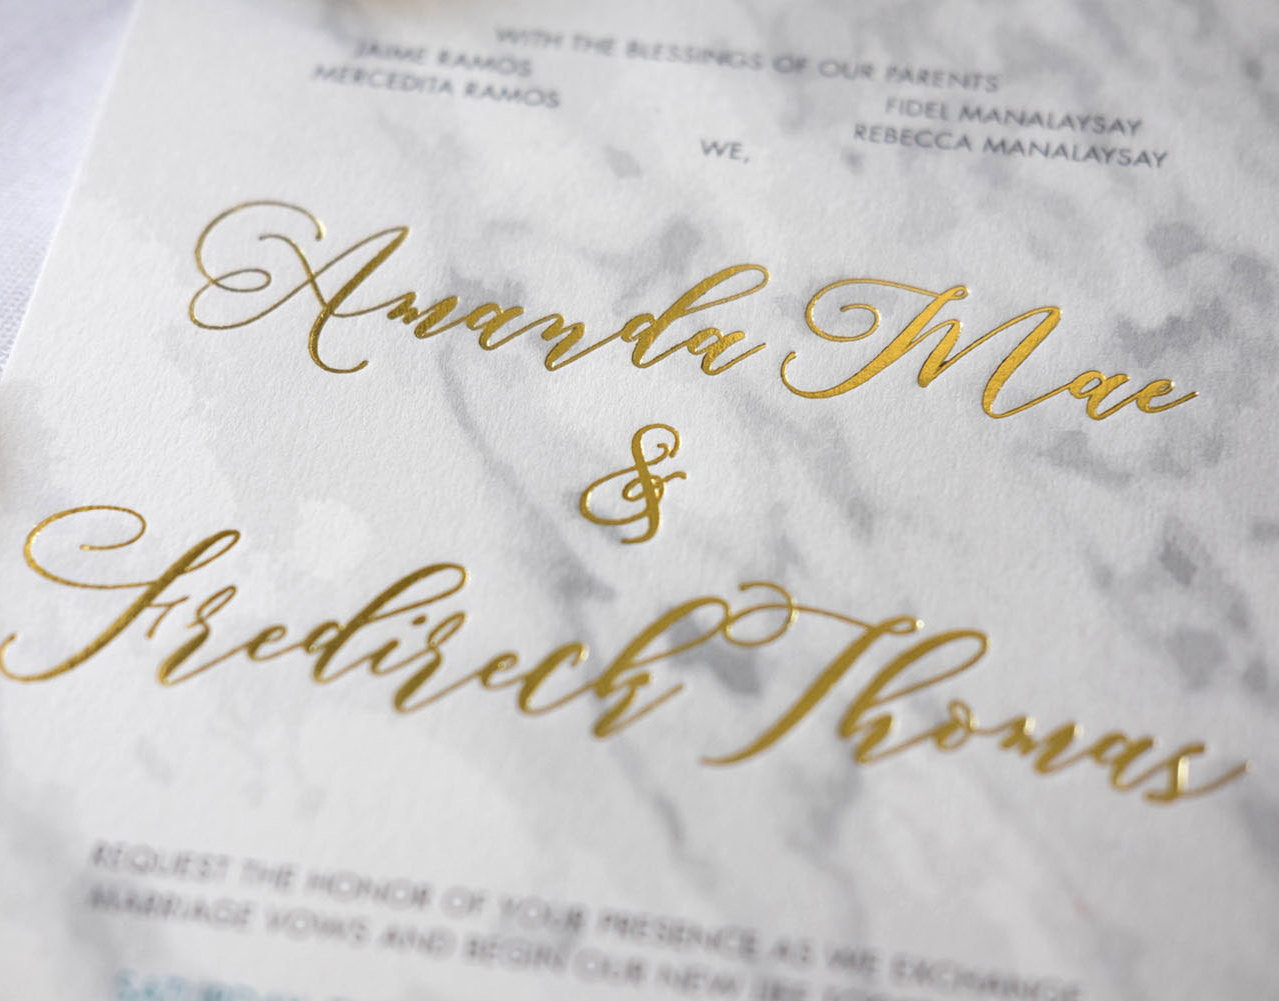 WITH THE BLESSINGS OF OUR PARENTS
JAIME RAMOS
MERCEDITA RAMOS
FIDEL MANALAYSAY
REBECCA MANALAYSAY
WE,
Amanda Mae
&
Fredireck Thomas
REQUEST THE HONOR OF YOUR PRESENCE AS WE EXCHANGE
MARRIAGE VOWS AND BEGIN OUR NEW LIFE
SATURDAY